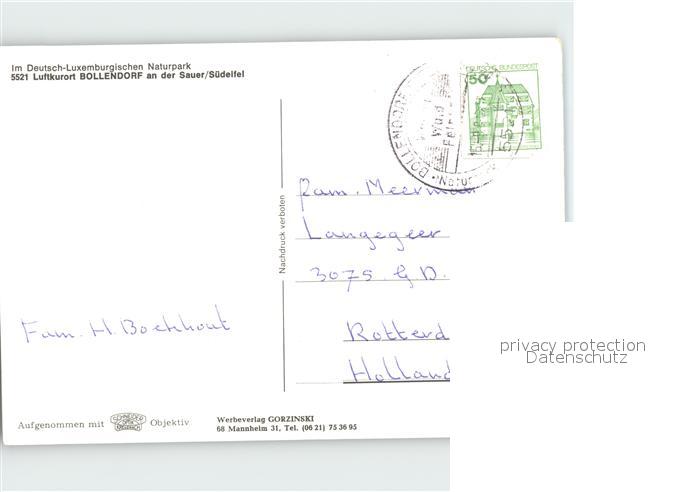 Im Deutsch-Luxemburgischen Naturpark
5521 Luftkurort BOLLENDORF an der Sauer/Südeifel
DEUTSCHE BUNDESPOST
50
BOLLENDORF
Nachdruck verboten
Fam. Meerman
Langegeer
3075 G.D.
Rotterd
Holland
Fam. H. Boekhout
privacy protection
Datenschutz
Aufgenommen mit SCHNEIDER KREUZNACH Objektiv
Werbeverlag GORZINSKI
68 Mannheim 31, Tel. (06 21) 75 36 95